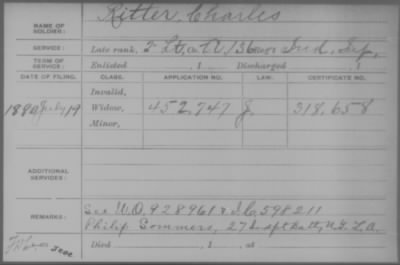 Ritter, Charles
NAME OF SOLDIER:
SERVICE: Late rank, 2 Lt. Co. A, 136 Reg't Ind. Inf.
TERM OF SERVICE: Enlisted , 1 Discharged , 1
DATE OF FILING. CLASS. APPLICATION NO. LAW. CERTIFICATE NO.
Invalid,
1890 July 19 Widow, 452,747 J. 318,658
Minor,
ADDITIONAL SERVICES:
REMARKS: See W.O. 928961 & I.C. 598211
Philip Sommers, 27 Ind. Batt. N.Y. L.A.
Died , 1 , at